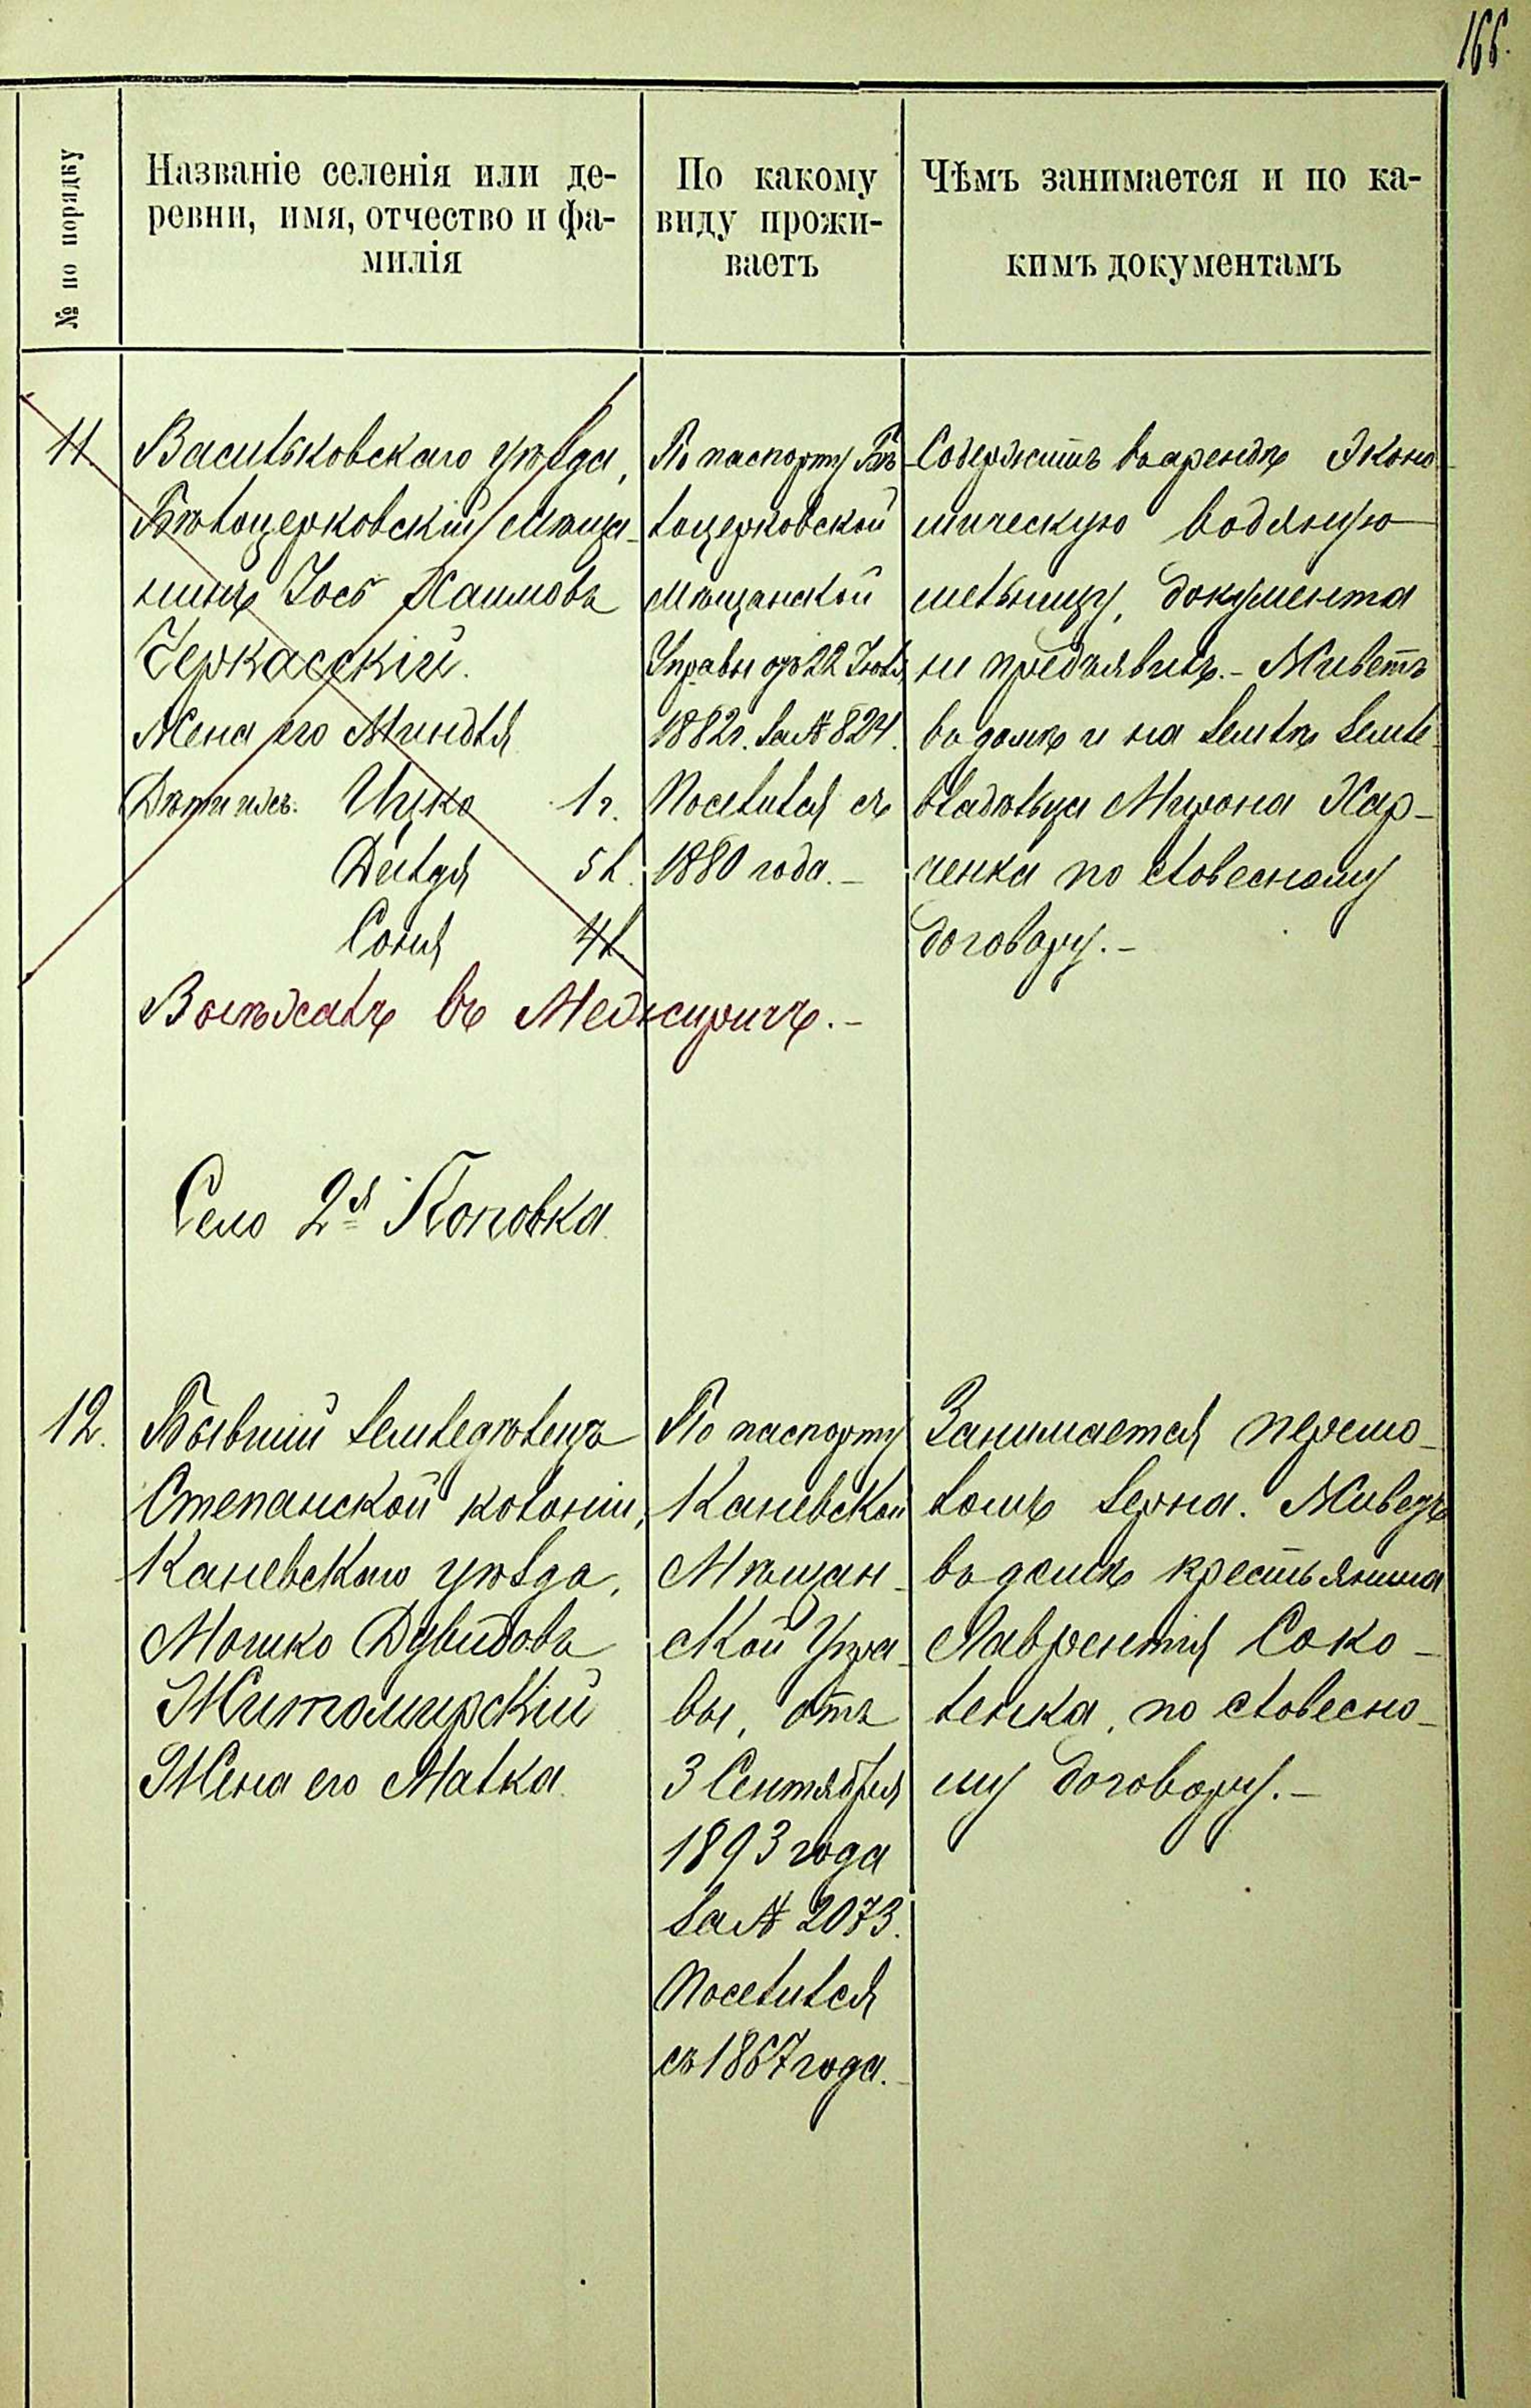 166.
№ по порядку
Названіе селенія или де-
ревни, имя, отчество и фа-
милія
По какому
виду прожи-
ваетъ
Чѣмъ занимается и по ка-
кимъ документамъ
11.
Васильковскаго уѣзда,
Бѣлоцерковскій мѣща-
нинъ Іосъ Хаимовъ
Черкасскій.
Жена его Миндля
Дѣти ихъ: Ицко 1 г.
Дейдя 5 л.
Соня 4 л.
Выѣхалъ въ Межиричъ.-
По паспорту Бѣ-
лоцерковской
Мѣщанской
Управы отъ 22 Іюля
1882 г. за № 824.
Поселился съ
1880 года.-
Содержитъ въ арендѣ Эконо-
мическую водяную
мельницу, документа
не предъявилъ.- Живетъ
въ домѣ и на землѣ земле-
владѣльца Мирона Хар-
ченка по словесному
договору.-
Село 2я Поповка.
12.
Бывшій земледѣлецъ
Степанской колоніи,
Каневскаго уѣзда,
Мошко Дувидовъ
Житомирскій
Жена его Малка.
По паспорту
Каневской
Мѣщан-
ской Упра-
вы, отъ
3 Сентября
1893 года
за № 2073.
Поселился
съ 1867 года.-
Занимается перемо-
ломъ зерна. Живетъ
въ домѣ крестьянина
Лаврентія Соко-
ленка, по словесно-
му договору.-